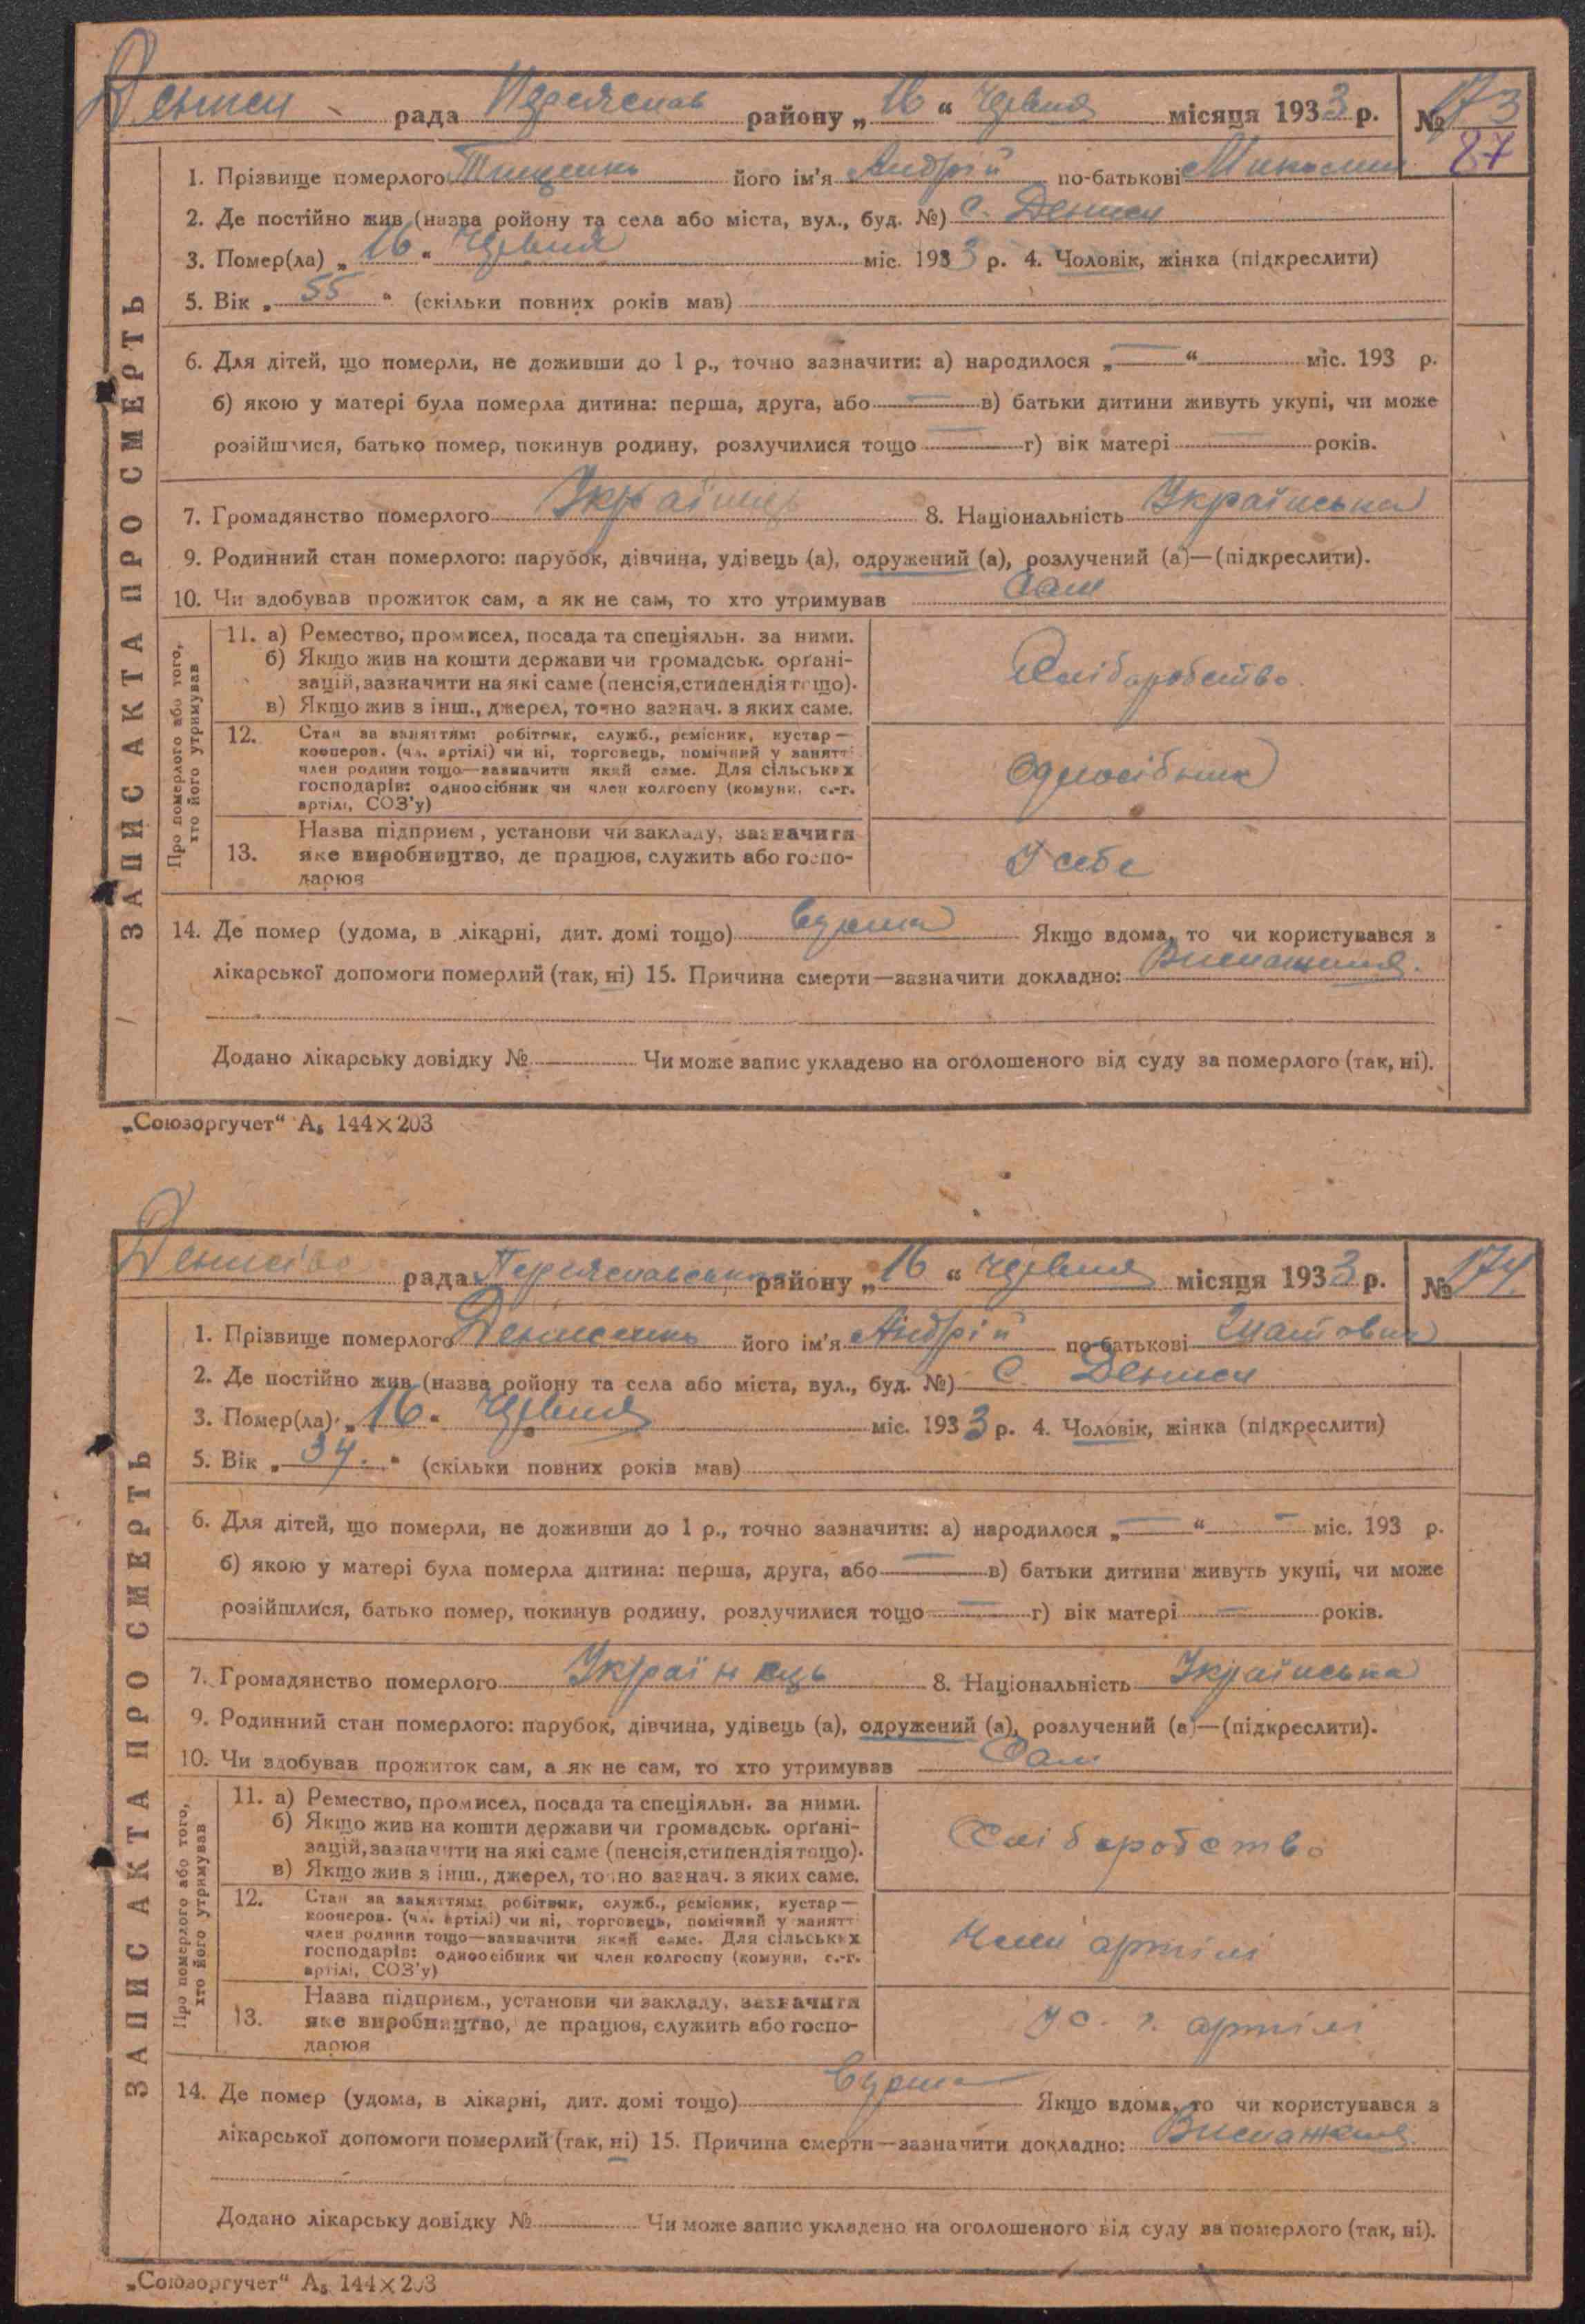 Дениси рада Переяслав району „16“ червня місяця 1933 р. № 173
87
1. Прізвище померлого Тищенко його ім'я Андрій по-батькові
2. Де постійно жив (назва ройону та села або міста, вул., буд. №) с. Дениси
3. Помер(ла) „16“ червня міс. 1933 р. 4. Чоловік, жінка (підкреслити)
5. Вік „55“ (скільки повних років мав)
6. Для дітей, що померли, не доживши до 1 р., точно зазначити: а) народилося „—“ міс. 193 р.
б) якою у матері була померла дитина: перша, друга, або — в) батьки дитини живуть укупі, чи може
розійшлися, батько помер, покинув родину, розлучилися тощо — г) вік матері — років.
7. Громадянство померлого Українець 8. Національність Українська
9. Родинний стан померлого: парубок, дівчина, удівець (а), одружений (а), розлучений (а)—(підкреслити).
10. Чи здобував прожиток сам, а як не сам, то хто утримував Сам
ЗАПИС АКТА ПРО СМЕРТЬ
Про померлого або того, хто його утримував
11. а) Ремество, промисел, посада та спеціяльн. за ними.
б) Якщо жив на кошти держави чи громадськ. орґані-
зацій, зазначити на які саме (пенсія, стипендія тощо).
в) Якщо жив з інш., джерел, точно зазнач. з яких саме.
Хліборобство.
12. Стан за заняттям: робітник, служб., ремісник, кустар—
кооперов. (чл. артілі) чи ні, торговець, помічний у занятті
член родини тощо—зазначити який саме. Для сільських
господарів: одноосібник чи член колгоспу (комуни, с.-г.
артілі, СОЗ'у)
Одноосібник
13. Назва підприєм., установи чи закладу, зазначити
яке виробництво, де працює, служить або госпо-
дарює
У себе
14. Де помер (удома, в лікарні, дит. домі тощо) вдома Якщо вдома, то чи користувався з
лікарської допомоги померлий (так, ні) 15. Причина смерти—зазначити докладно: Виснаження.
Додано лікарську довідку № Чи може запис укладено на оголошеного від суду за померлого (так, ні).
„Союзоргучет“ А₅ 144×203
рада Переяславськ району „16“ червня місяця 1933 р. № 174.
1. Прізвище померлого Денисенко його ім'я Андрій по-батькові
2. Де постійно жив (назва ройону та села або міста, вул., буд. №) С. Дениси
3. Помер(ла) „16“ червня міс. 1933 р. 4. Чоловік, жінка (підкреслити)
5. Вік „34.“ (скільки повних років мав)
6. Для дітей, що померли, не доживши до 1 р., точно зазначити: а) народилося „—“ — міс. 193 р.
б) якою у матері була померла дитина: перша, друга, або — в) батьки дитини живуть укупі, чи може
розійшлися, батько помер, покинув родину, розлучилися тощо — г) вік матері — років.
7. Громадянство померлого Українець 8. Національність Українська
9. Родинний стан померлого: парубок, дівчина, удівець (а), одружений (а), розлучений (а)—(підкреслити).
10. Чи здобував прожиток сам, а як не сам, то хто утримував Сам
ЗАПИС АКТА ПРО СМЕРТЬ
Про померлого або того, хто його утримував
11. а) Ремество, промисел, посада та спеціяльн. за ними.
б) Якщо жив на кошти держави чи громадськ. орґані-
зацій, зазначити на які саме (пенсія, стипендія тощо).
в) Якщо жив з інш., джерел, точно зазнач. з яких саме.
Хліборобство
12. Стан за заняттям: робітник, служб., ремісник, кустар—
кооперов. (чл. артілі) чи ні, торговець, помічний у занятті
член родини тощо—зазначити який саме. Для сільських
господарів: одноосібник чи член колгоспу (комуни, с.-г.
артілі, СОЗ'у)
Член артілі
13. Назва підприєм., установи чи закладу, зазначити
яке виробництво, де працює, служить або госпо-
дарює
У с. г. артілі
14. Де помер (удома, в лікарні, дит. домі тощо) вдома Якщо вдома, то чи користувався з
лікарської допомоги померлий (так, ні) 15. Причина смерти—зазначити докладно: Виснаження.
Додано лікарську довідку № Чи може запис укладено на оголошеного від суду за померлого (так, ні).
„Союзоргучет“ А₅ 144×203